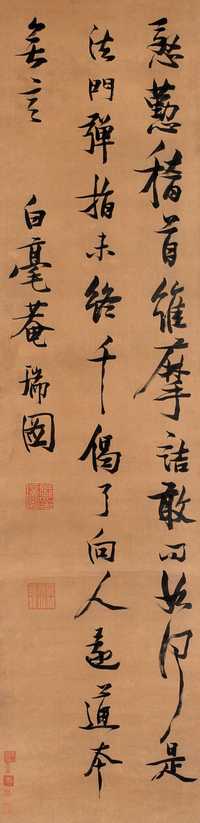 慇懃稽首維摩詰敢問如何是
法門彈指未終千偈了向人還道本
無言
白毫菴瑞圖